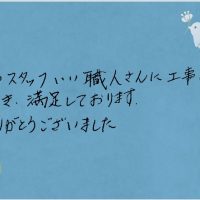 スタッフいい職人さんに工事
き、満足しております。
がとうございました